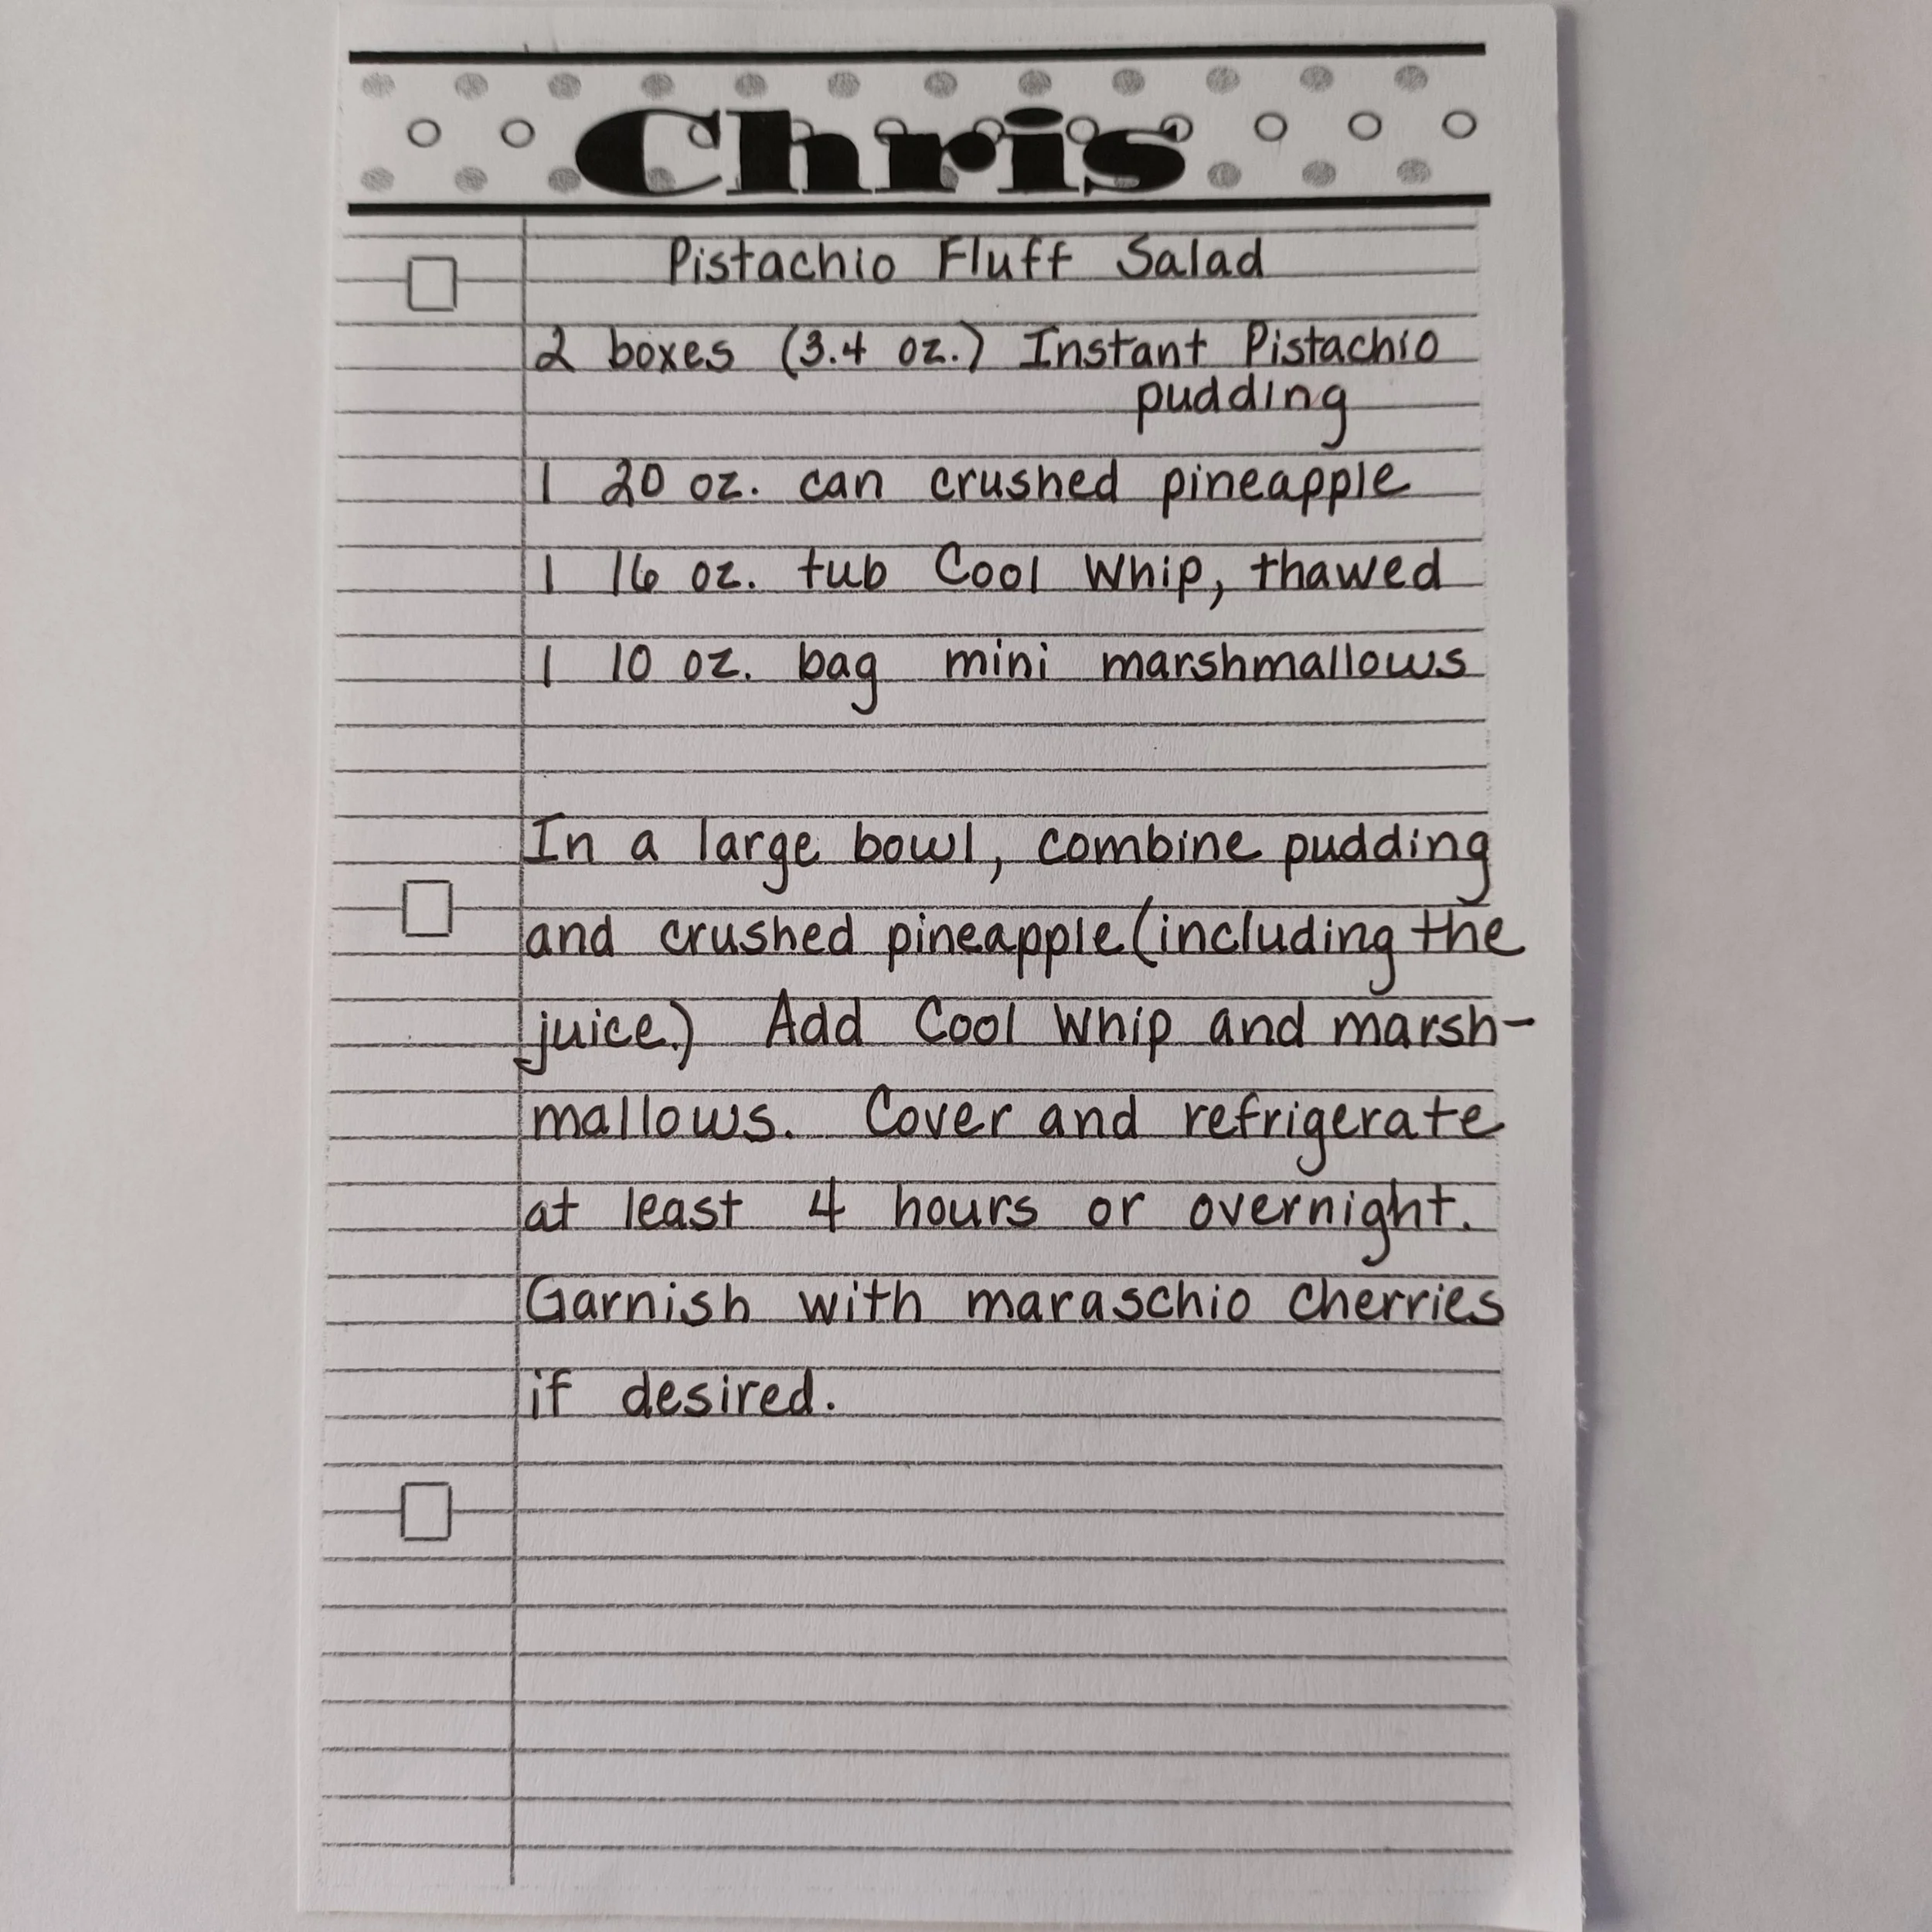 Chris
Pistachio Fluff Salad
2 boxes (3.4 oz.) Instant Pistachio
pudding
1 20 oz. can crushed pineapple
1 16 oz. tub Cool Whip, thawed
1 10 oz. bag mini marshmallows
In a large bowl, combine pudding
and crushed pineapple (including the
juice.) Add Cool Whip and marsh-
mallows. Cover and refrigerate
at least 4 hours or overnight.
Garnish with maraschio cherries
if desired.